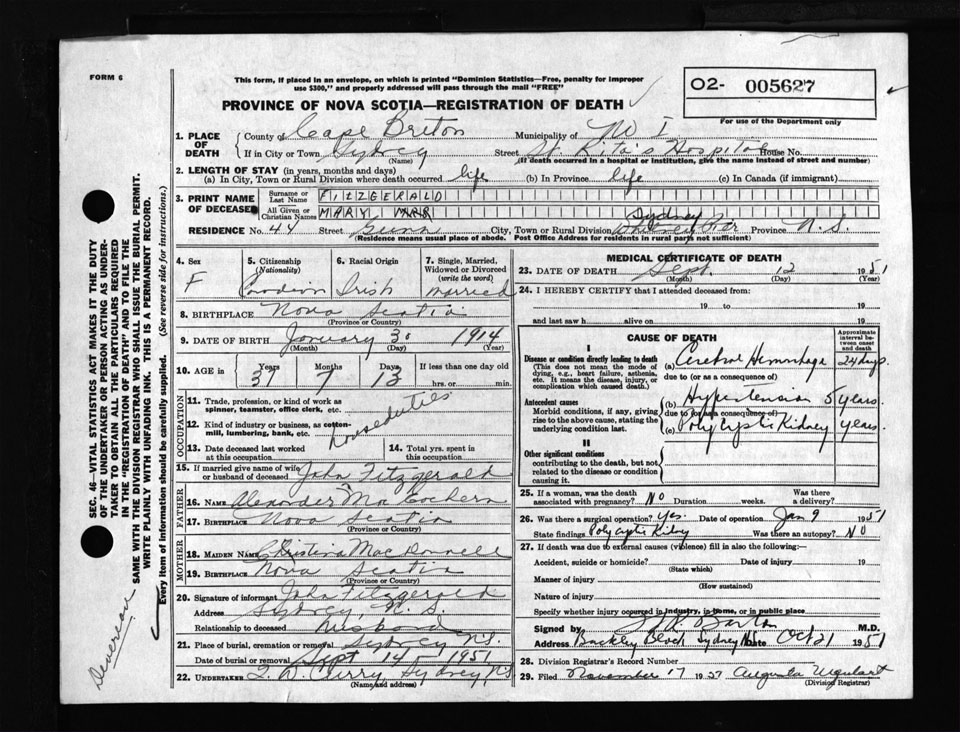 FORM 6
This form, if placed in an envelope, on which is printed "Dominion Statistics—Free, penalty for improper
use $300," and properly addressed will pass through the mail "FREE"
O2- 005627
For use of the Department only
PROVINCE OF NOVA SCOTIA—REGISTRATION OF DEATH
1. PLACE OF DEATH County of Cape Breton Municipality of
If in City or Town Sydney (Name) Street St. Rita's Hospital House No.
(If death occurred in a hospital or institution, give the name instead of street and number)
2. LENGTH OF STAY (in years, months and days)
(a) In City, Town or Rural Division where death occurred life (b) In Province life (c) In Canada (if immigrant)
3. PRINT NAME OF DECEASED Surname or Last Name FITZGERALD
All Given or Christian Names MARY
RESIDENCE No. 44 Street City, Town or Rural Division Sydney Whitney Pier Province N.S.
(Residence means usual place of abode. Post Office Address for residents in rural parts not sufficient)
4. Sex F
5. Citizenship (Nationality) Canadian
6. Racial Origin Irish
7. Single, Married, Widowed or Divorced (write the word) Married
8. BIRTHPLACE Nova Scotia
(Province or Country)
9. DATE OF BIRTH January 30 1914
(Month) (Day) (Year)
10. AGE in Years 37 Months 7 Days 13 If less than one day
hrs. or min.
OCCUPATION
11. Trade, profession, or kind of work as spinner, teamster, office clerk, etc. Houseduties
12. Kind of industry or business, as cotton-mill, lumbering, bank, etc.
13. Date deceased last worked at this occupation
14. Total yrs. spent in this occupation
15. If married give name of wife or husband of deceased John Fitzgerald
FATHER
16. NAME Alexander Mac Eachern
17. BIRTHPLACE Nova Scotia
(Province or Country)
MOTHER
18. MAIDEN NAME Christena MacDonnell
19. BIRTHPLACE Nova Scotia
(Province or Country)
20. Signature of informant John Fitzgerald
Address Sydney, N.S.
Relationship to deceased husband
21. Place of burial, cremation or removal Sydney N.S.
Date of burial or removal Sept 14 1951
22. UNDERTAKER Curry, Sydney N.S.
(Name and address)
MEDICAL CERTIFICATE OF DEATH
23. DATE OF DEATH Sept. 12 1951
(Month) (Day) (Year)
24. I HEREBY CERTIFY that I attended deceased from:
19 to 19
and last saw h alive on 19
CAUSE OF DEATH
Approximate interval between onset and death
I
Disease or condition directly leading to death (a) Cerebral Hemorrhage 24 days.
(This does not mean the mode of dying, e.g., heart failure, asthenia, etc. It means the disease, injury, or complication which caused death.)
due to (or as a consequence of)
Antecedent causes (b) Hypertension 5 years.
Morbid conditions, if any, giving rise to the above cause, stating the underlying condition last.
due to (or as a consequence of)
(c) Polycystic Kidney years.
II
Other significant conditions
contributing to the death, but not related to the disease or condition causing it.
25. If a woman, was the death associated with pregnancy? No Duration weeks. Was there a delivery?
26. Was there a surgical operation? Yes. Date of operation Jan 9 1951
State findings Polycystic Kidney Was there an autopsy? No
27. If death was due to external causes (violence) fill in also the following:—
Accident, suicide or homicide? Date of injury 19
(State which)
Manner of injury
(How sustained)
Nature of injury
Specify whether injury occurred in industry, in home, or in public place
Signed by M.D.
Address Buckley Block Sydney NS Date Oct 21 1951
28. Division Registrar's Record Number
29. Filed November 17 1951 Augusta Urquhart
(Division Registrar)
SEC. 46—VITAL STATISTICS ACT MAKES IT THE DUTY
OF THE UNDERTAKER OR PERSON ACTING AS UNDER-
TAKER TO OBTAIN ALL THE PARTICULARS REQUIRED
IN THE "REGISTRATION OF DEATH" AND TO FILE THE
SAME WITH THE DIVISION REGISTRAR WHO SHALL ISSUE THE BURIAL PERMIT.
WRITE PLAINLY WITH UNFADING INK. THIS IS A PERMANENT RECORD.
Every item of information should be carefully supplied. (See reverse side for instructions.)